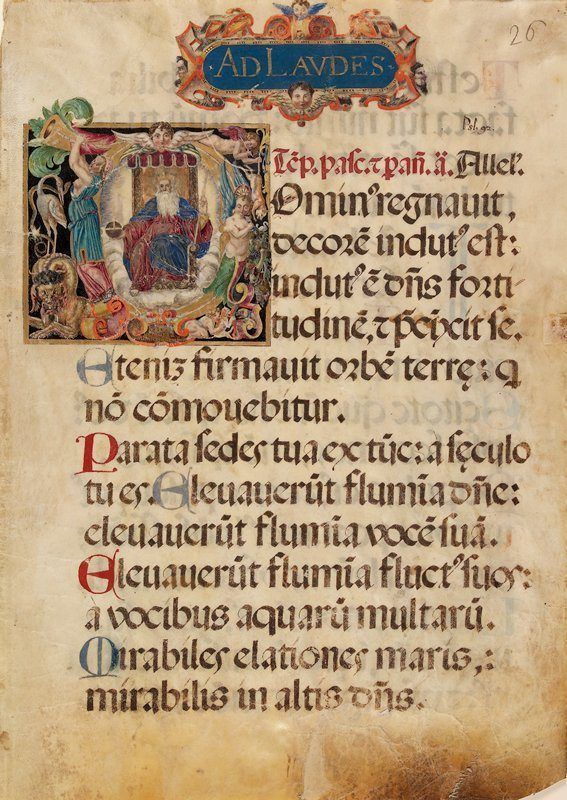 26
AD LAVDES
Psl. 92.
Tẽp. pasc. ⁊ p añ. ã. Alleł.
Dominꝰ regnauit,
decorẽ indutꝰ est:
indutꝰ ẽ dñs forti-
tudinẽ, ⁊ p̃cĩxit se.
Eteniʒ firmauit orbẽ terrę: q
nõ cõmouebitur.
Parata sedes tua ex tũc: a sęculo
tu es. Eleuauerũt flumĩa dñe:
eleuauerũt flumĩa vocẽ suã.
Eleuauerũt flumĩa fluctꝰ suos:
a vocibus aquarũ multarũ.
Mirabiles elationes maris,:
mirabilis in altis dñs.